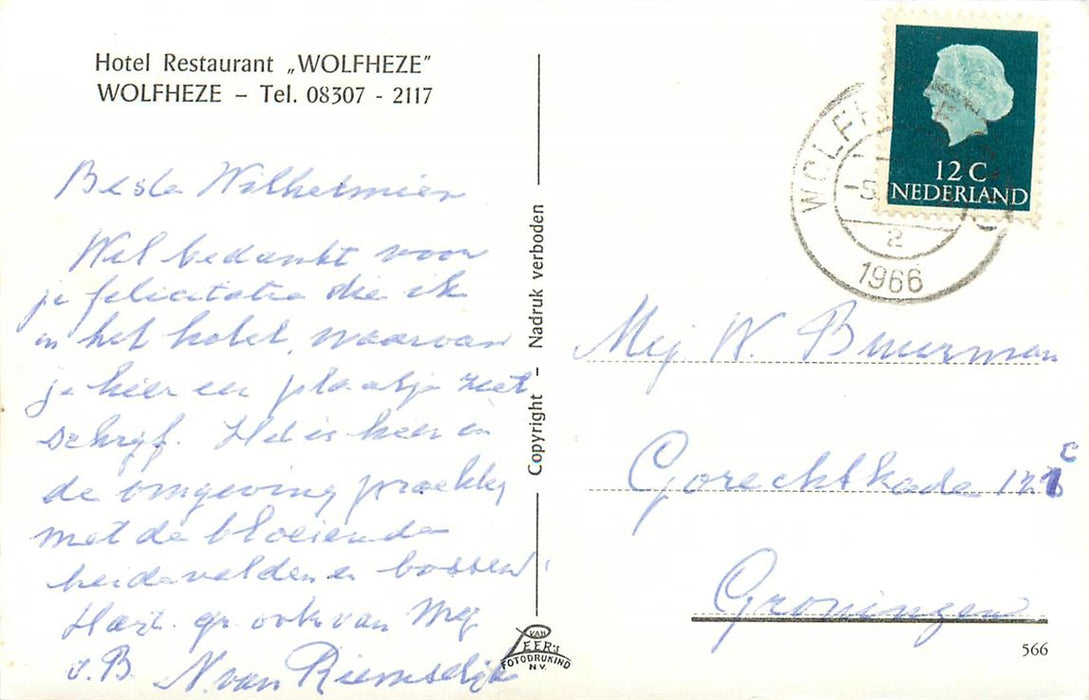 Hotel Restaurant „WOLFHEZE”
WOLFHEZE – Tel. 08307 - 2117
Beste Wilhelmien
Wel bedankt voor
je felicitatie die ik
in het hotel, waarvan
je hier een plaatje ziet
schrijf. Het is hier in
de omgeving prachtig
met de bloeiende
heidevelden en bossen!
Hart. gr. ook van Mej
v. B. N. van Riemsdijk
Copyright - Nadruk verboden
VAN
LEER's
FOTODRUKIND
N.V.
12 C
NEDERLAND
2
1966
Mej W. Buurman
Gorechtkade
Groningen
566